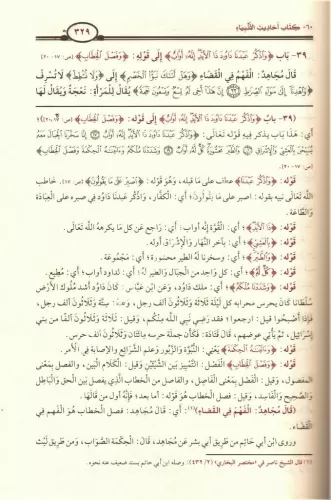 ٦٠- كتاب أحاديث الأنبياء ٣٢٩
٣٩- باب ﴿وَاذْكُرْ عَبْدَنَا دَاوُدَ ذَا الْأَيْدِ إِنَّهُ أَوَّابٌ﴾ إلى قوله: ﴿وَفَصْلَ الْخِطَابِ﴾ [ص: ١٧-٢٠]
قال مجاهد: الفهم في القضاء ﴿وَهَلْ أَتَاكَ نَبَأُ الْخَصْمِ﴾ إلى ﴿وَلَا تُشْطِطْ﴾ لا تسرف
﴿وَاهْدِنَا إِلَى سَوَاءِ الصِّرَاطِ﴾ ﴿إِنَّ هَذَا أَخِي لَهُ تِسْعٌ وَتِسْعُونَ نَعْجَةً﴾ يقال للمرأة: نعجة ويقال لها
(٣٩- باب) ﴿وَاذْكُرْ عَبْدَنَا دَاوُدَ ذَا الْأَيْدِ إِنَّهُ أَوَّابٌ﴾ إلى قوله: ﴿وَفَصْلَ الْخِطَابِ﴾
أي: هذا باب يذكر فيه قوله تعالى: ﴿وَاذْكُرْ عَبْدَنَا دَاوُدَ ذَا الْأَيْدِ إِنَّهُ أَوَّابٌ إِنَّا سَخَّرْنَا الْجِبَالَ مَعَهُ
يُسَبِّحْنَ بِالْعَشِيِّ وَالْإِشْرَاقِ وَالطَّيْرَ مَحْشُورَةً كُلٌّ لَهُ أَوَّابٌ وَشَدَدْنَا مُلْكَهُ وَآتَيْنَاهُ الْحِكْمَةَ وَفَصْلَ الْخِطَابِ﴾
[ص: ١٧-٢٠].
قوله: ﴿وَاذْكُرْ عَبْدَنَا دَاوُدَ﴾ عطف على ما قبله، وهو قوله: ﴿اصْبِرْ عَلَى مَا يَقُولُونَ﴾ [ص: ١٧]. خاطب
الله تعالى نبيه بقوله: اصبر على ما يقولون، أي: الكفار، واذكر عبدنا داود في صبره على العبادة
والطاعة.
قوله: ﴿ذَا الْأَيْدِ﴾، أي: القوة إنه أواب: أي: راجع عن كل ما يكرهه الله تعالى.
قوله: ﴿بِالْعَشِيِّ﴾، أي: بآخر النهار والإشراق أوله.
قوله: ﴿وَالطَّيْرَ﴾ أي: وسخرنا له الطير محشورة، أي: مجموعة.
قوله: ﴿كُلٌّ لَهُ﴾، أي: كل واحد من الجبال والطير له؛ أي: لداود أواب، أي: مطيع.
قوله: ﴿وَشَدَدْنَا مُلْكَهُ﴾؛ أي: ملك داود، وعن ابن عباس: كان داود أشد ملوك الأرض
سلطانا كان يحرس محرابه كل ليلة ثلاثة وثلاثون ألف رجل،
فإذا أصبحوا قيل: ارجعوا؛ فقد رضي نبي الله منكم، وقال: ثلاثون ألفا من بني
إسرائيل، ثم يأتي عوضهم، قال قتادة: فكان جملة حرسه مائتان وثلاثون ألف حرس.
قوله: ﴿وَآتَيْنَاهُ الْحِكْمَةَ﴾ يعني: النبوة والزبور وعلم الشرائع والإصابة في الأمر.
قوله: ﴿وَفَصْلَ الْخِطَابِ﴾، الفصل: التمييز بين الشيئين، وقيل: الكلام البين، والفصل بمعنى
المفصول، وقيل: الفصل بمعنى الفاصل، والفاصل من الخطاب الذي يفصل بين الحق والباطل
والصحيح والفاسد، وقيل: فصل الخطاب هو قوله: أما بعد، فإنه أول من قالها.
(قال مجاهد: الفهم في القضاء)(١)، أي: قال مجاهد: فصل الخطاب هو الفهم في القضاء.
وروى ابن أبي حاتم من طريق أبي بشر، عن مجاهد، قال: الحكمة الصواب، ومن طريق ليث
(١) قال الشيخ ناصر في «مختصر البخاري» (٢/ ٤٣٩): وصله ابن أبي حاتم بسند ضعيف عنه نحوه.